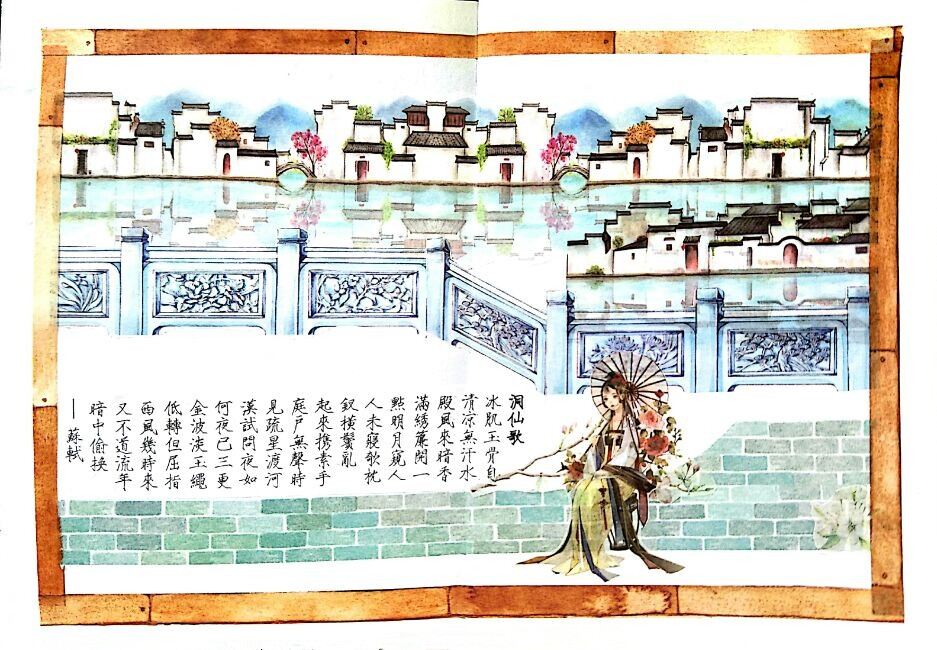 洞仙歌
冰肌玉骨自
清凉無汗水
殿風來暗香
滿綉簾開一
點明月窺人
人未寢欹枕
釵橫鬢亂
起來携素手
庭戶無聲時
見疏星渡河
漢試問夜如
何夜已三更
金波淡玉繩
低轉但屈指
西風幾時來
又不道流年
暗中偷換
——蘇軾